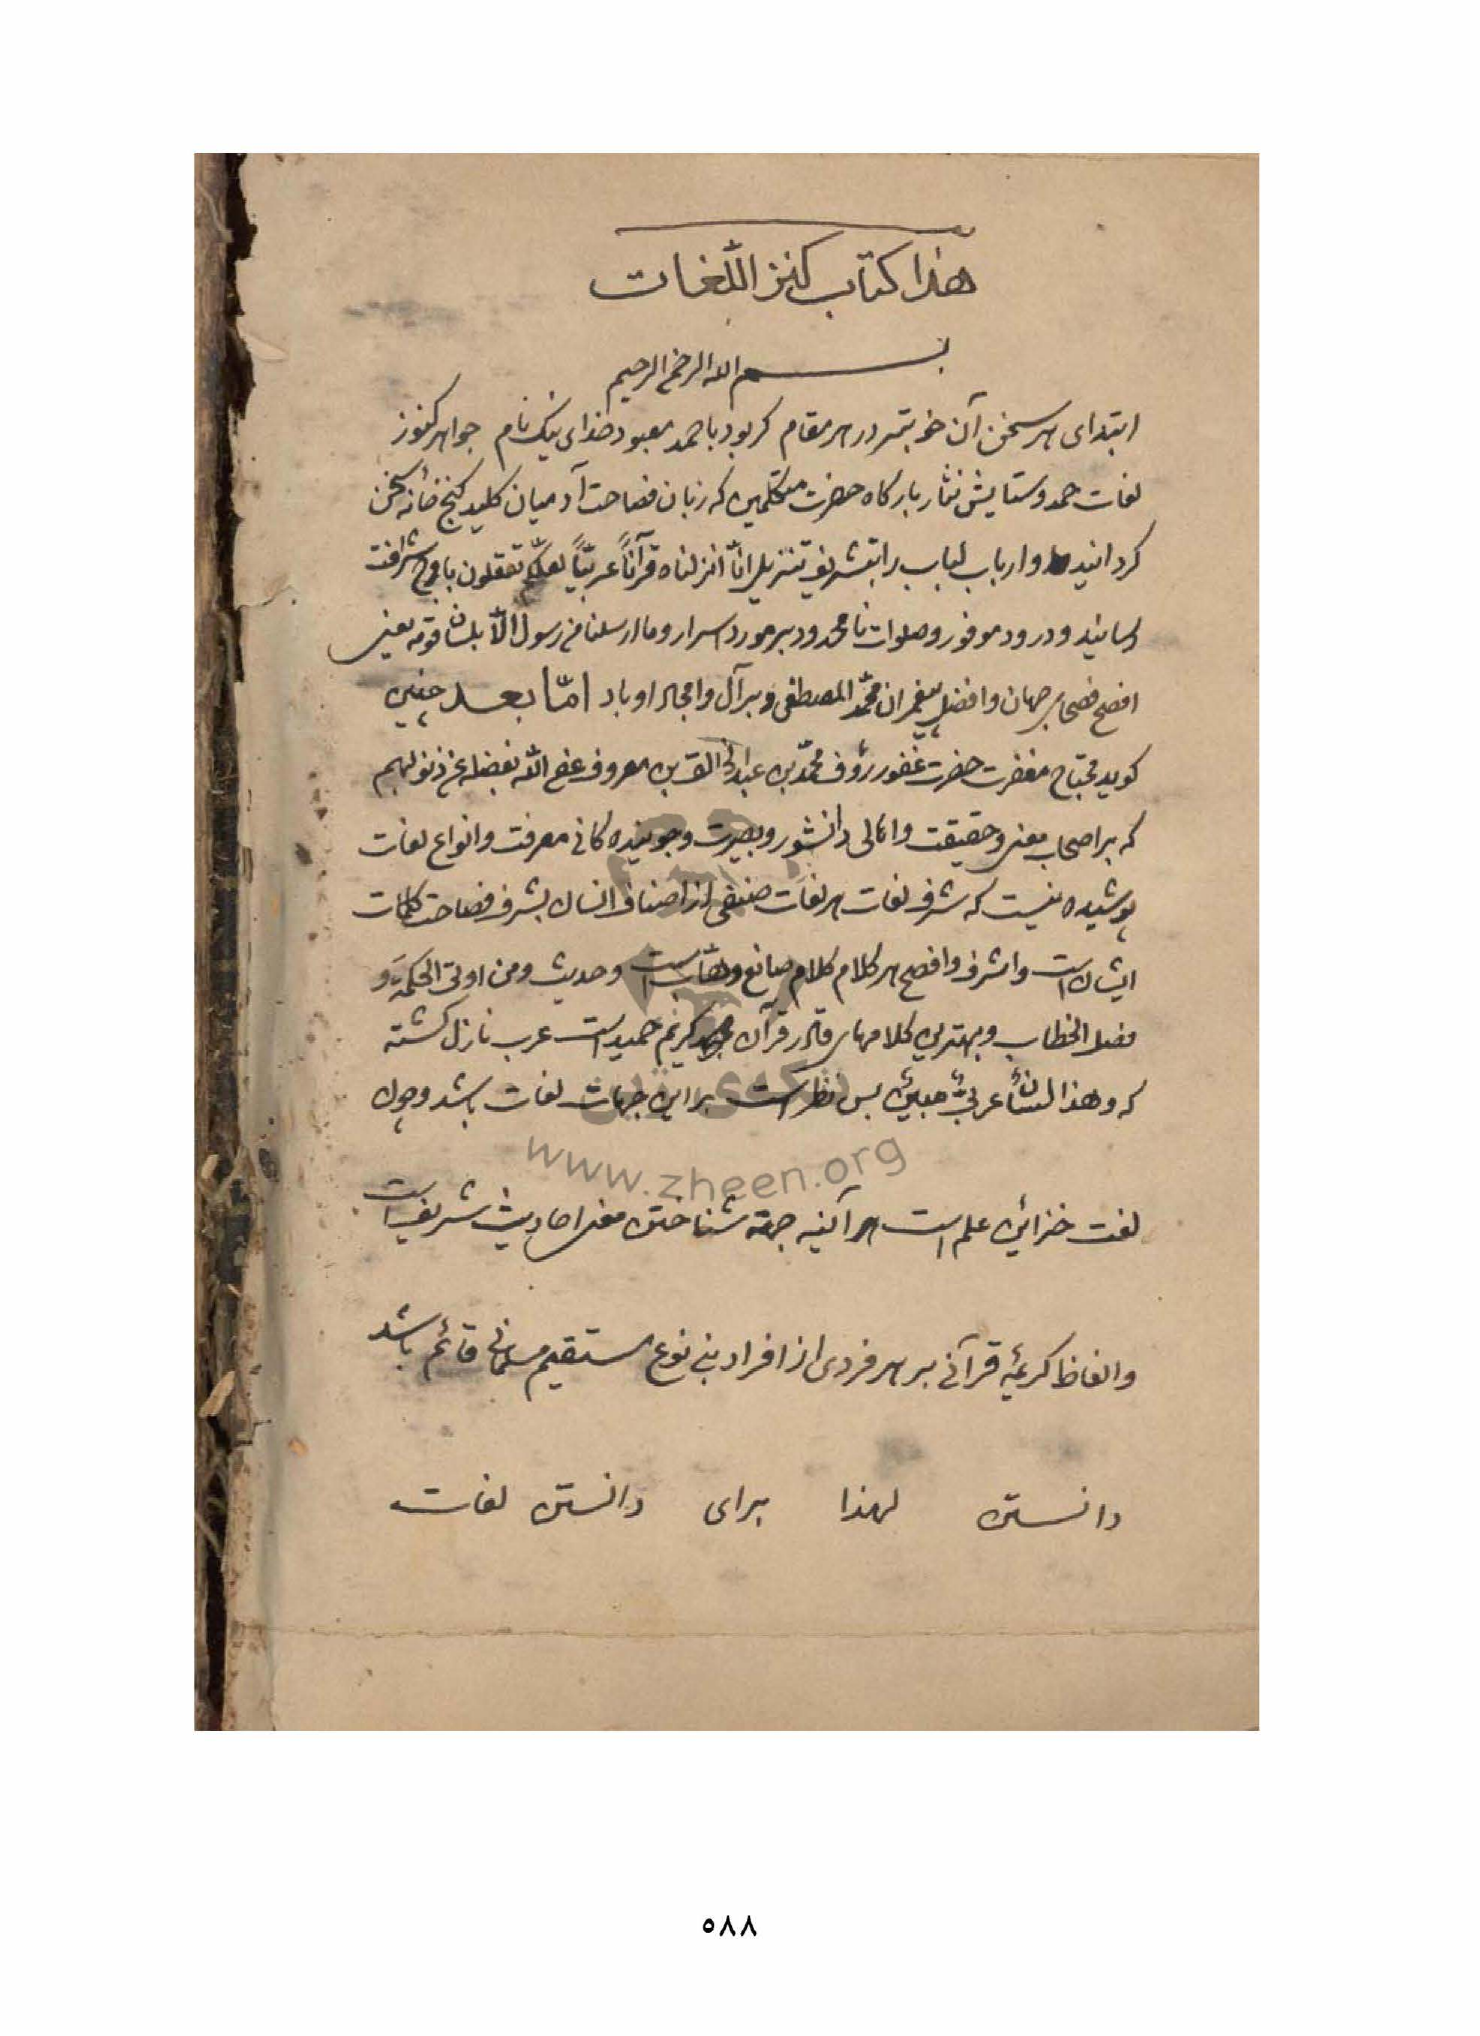 هذا كتاب كنز اللّغات
بسم الله الرحمن الرحيم
ابتدای هر سخن آن خوبتر در هر مقام کر بود با حمد معبود خدای نیک نام جواهر کنوز
لغات حمد و ستایش نثار بارکاه حضرت متکلمین که زبان فصاحت آدمیان کلید کنج خانۀ سخن
کردانید و ارباب لباب را بتشریف تنزیل انّا انزلناه قرآناً عربیّاً لعلّکم تعقلون باوج شرافت
رسانید و درود موفور و صلوات نامحدود بر مورد اسرار وما ارسلنا من رسول الّا بلسان قومه یعنی
افصح فصحای جهان و افضل پیغمبران محمّد المصطفی و بر آل و امجاد او باد امّا بعد چنین
کوید محتاج مغفرت حضرت غفور رؤف محمّد بن عبد الخالق بن معروف عفی الله بفضله عن ذنوبهم
که بر اصحاب معنی و حقیقت و اهالی دانشور و بصیرت و جوینده کانی معرفت و انواع لغات
پوشیده نیست که شرف لغات هر لغات صنفی از اصناف انسان بشرف فصاحت کلمات
ایشان است و اشرف و افصح هر کلام کلام صانع وهّاب است و حدیث ومن اوتی الحکمة و
فصل الخطاب و بهترین کلامهای قادر قرآن کریم حمید است عرب نازل کشته
که وهذا لسانٌ عربیٌ مبینٌ بس نظر است بر این جهات لغات باشد و چون
لغت خزائن علم است هر آینه جهة شناختن معنی احادیث شریف است
و الفاظ کریمۀ قرآنی بر هر فردی از افراد بنی نوع مستقیم مسلمانی قائم باشد
دانستن لهذا برای دانستن لغات
www.zheen.org
٥٨٨